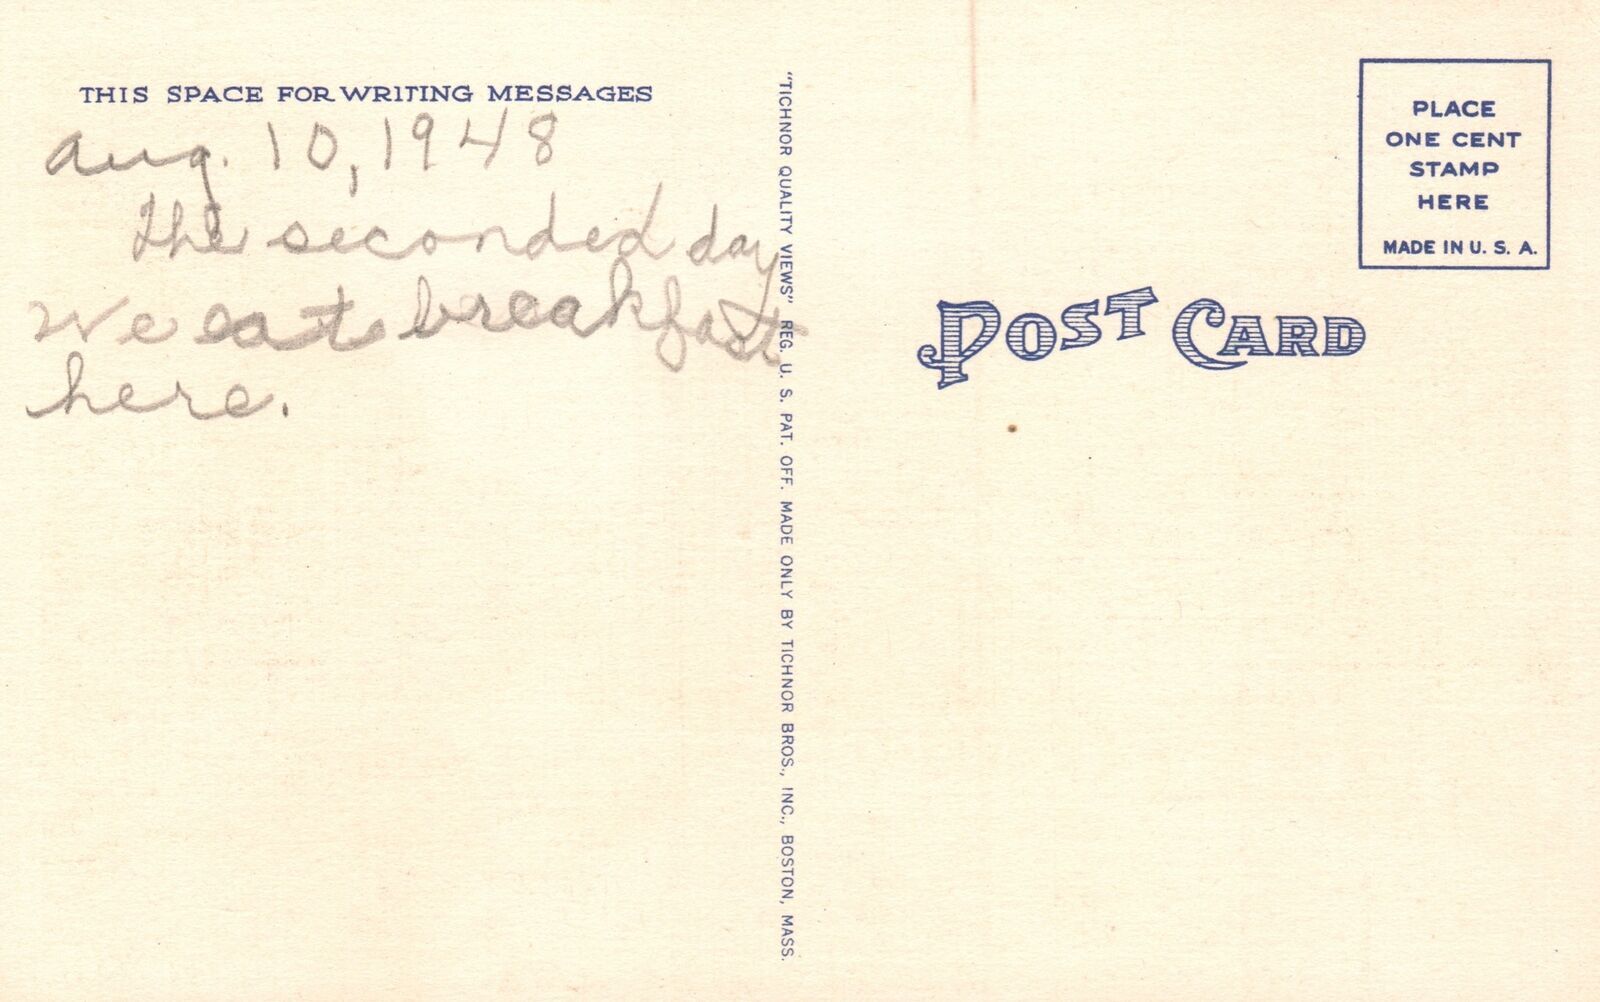 THIS SPACE FOR WRITING MESSAGES
Aug. 10, 1948
The seconded day
We eat breakfast
here.
"TICHNOR QUALITY VIEWS" REG. U. S. PAT. OFF. MADE ONLY BY TICHNOR BROS., INC., BOSTON, MASS.
PLACE
ONE CENT
STAMP
HERE
MADE IN U. S. A.
POST CARD